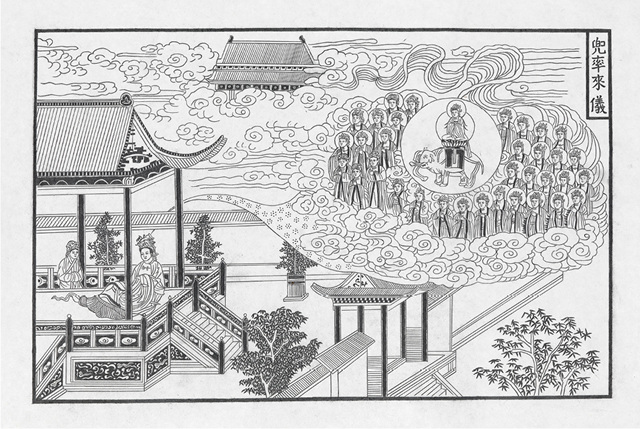 兜率來儀